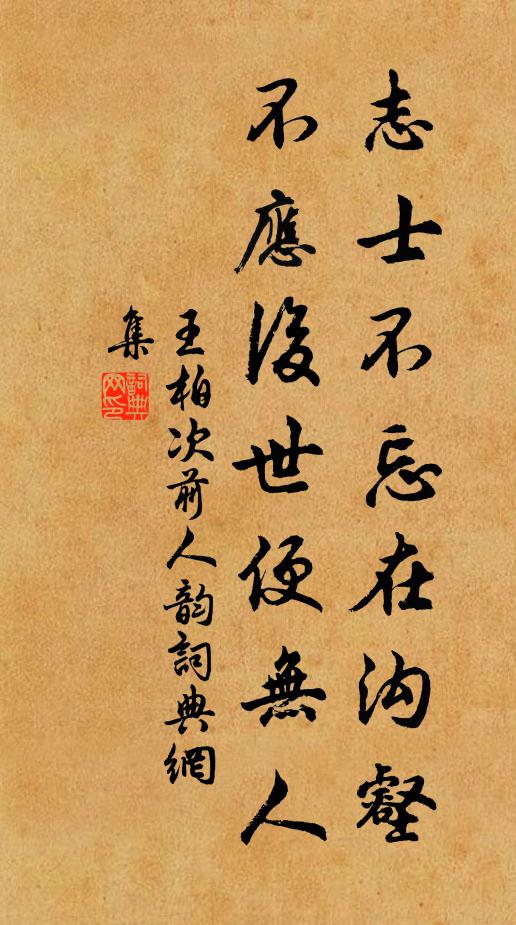 志士不忘在沟壑
不應後世便無人
王柏次前人韵詞典網
集
詞典
网印